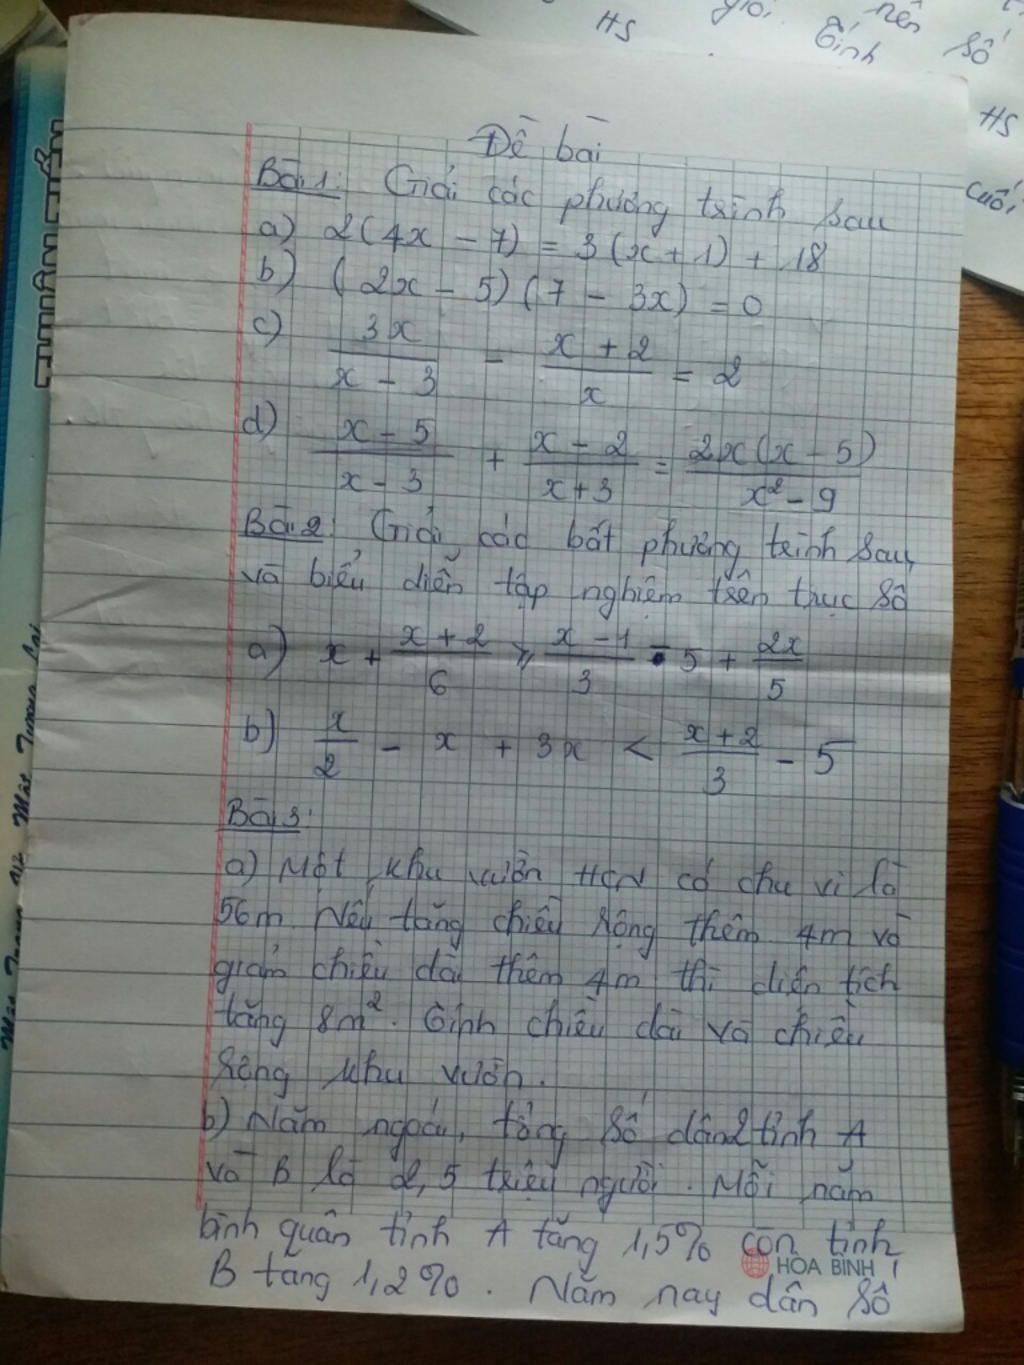 HS
giỏi.
nên
số
Tính
HS
cuối
THIÊN TIẾN
Đề bài
Bài 1: Giải các phương trình sau
a) 2(4x - 7) = 3(x + 1) + 18
b) (2x - 5)(7 - 3x) = 0
c) 3x/(x - 3) - (x + 2)/x = 2
d) (x - 5)/(x - 3) + (x - 2)/(x + 3) = 2x(x - 5)/(x² - 9)
Bài 2: Giải các bất phương trình sau
và biểu diễn tập nghiệm trên trục số
a) x + (x + 2)/6 ≥ (x - 1)/3 - 5 + 2x/5
b) x/2 - x + 3x < (x + 2)/3 - 5
Bài 3:
a) Một khu vườn HCN có chu vi là
56m. Nếu tăng chiều rộng thêm 4m và
giảm chiều dài thêm 4m thì diện tích
tăng 8m². Tính chiều dài và chiều
rộng khu vườn.
b) Năm ngoái, tổng số dân 2 tỉnh A
và B là 2,5 triệu người. Mỗi năm
bình quân tỉnh A tăng 1,5% còn tỉnh
B tăng 1,2%. Năm nay dân số
HÒA BÌNH